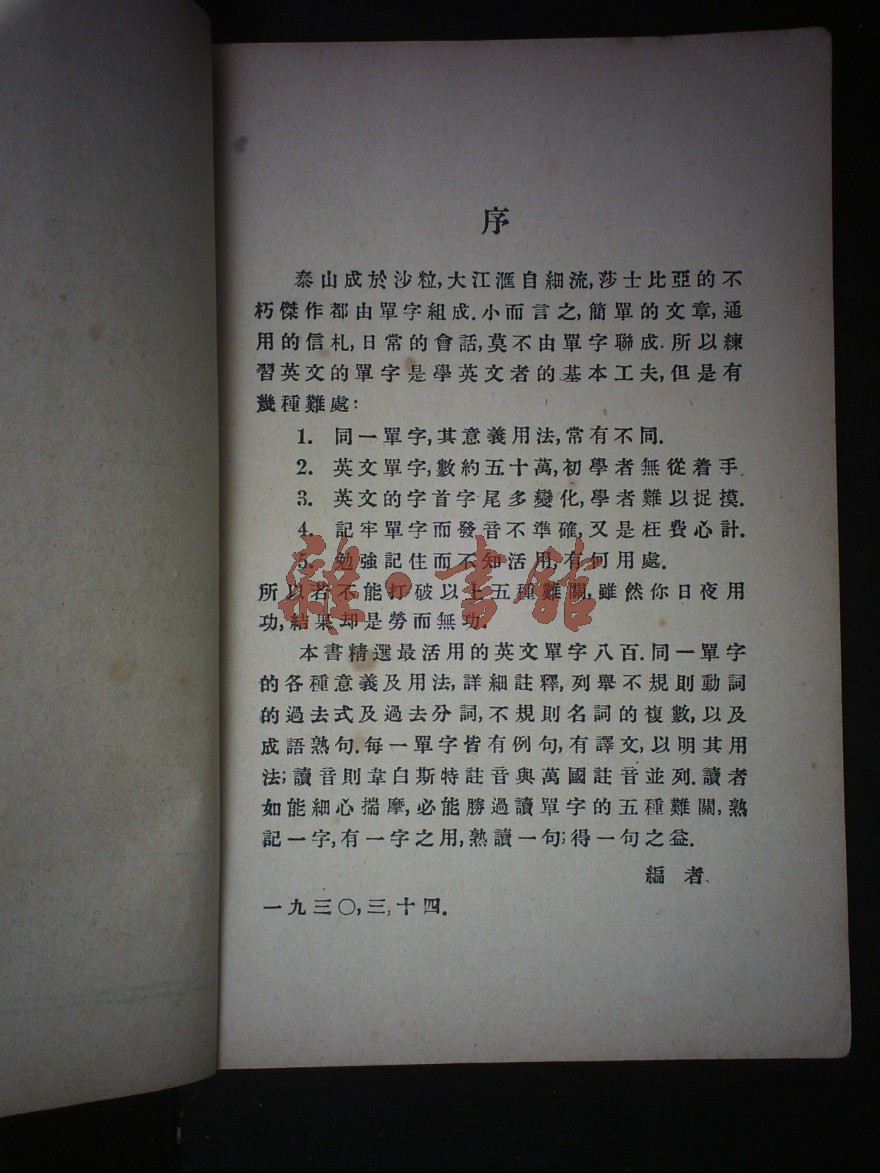 序
泰山成於沙粒,大江滙自細流,莎士比亞的不
朽傑作都由單字組成.小而言之,簡單的文章,通
用的信札,日常的會話,莫不由單字聯成.所以練
習英文的單字是學英文者的基本工夫,但是有
幾種難處:
1. 同一單字,其意義用法,常有不同.
2. 英文單字,數約五十萬,初學者無從着手.
3. 英文的字首字尾多變化,學者難以捉摸.
4. 記牢單字而發音不準確,又是枉費心計.
5. 勉強記住而不知活用,有何用處.
所以若不能打破以上五種難關,雖然你日夜用
功,結果却是勞而無功.
本書精選最活用的英文單字八百.同一單字
的各種意義及用法,詳細註釋,列舉不規則動詞
的過去式及過去分詞,不規則名詞的複數,以及
成語熟句.每一單字皆有例句,有譯文,以明其用
法;讀音則韋白斯特註音與萬國註音並列.讀者
如能細心揣摩,必能勝過讀單字的五種難關,熟
記一字,有一字之用,熟讀一句;得一句之益.
編者.
一九三〇,三,十四.
雜·書館